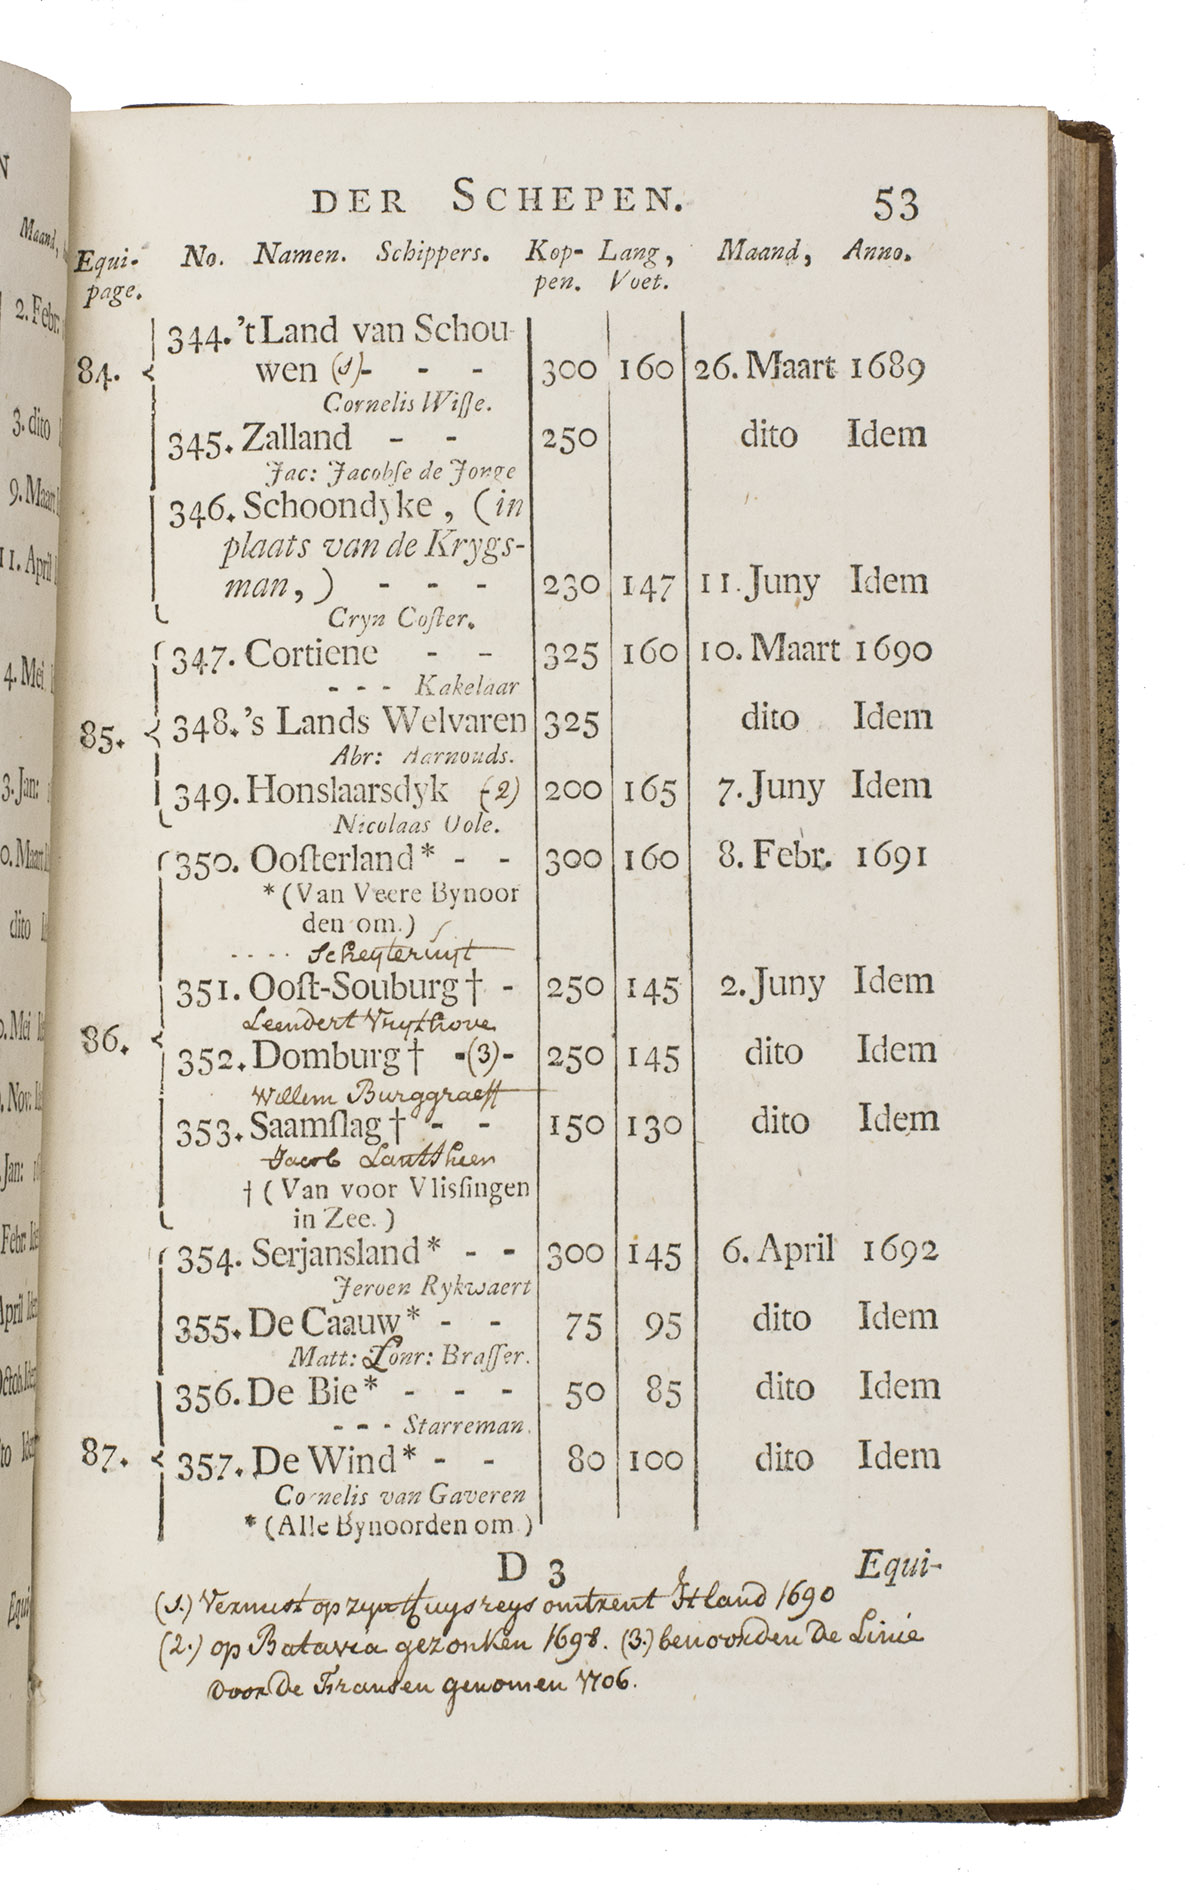 DER SCHEPEN. 53
Equi- No. Namen. Schippers. Kop- Lang, Maand, Anno.
page. pen. Voet.
344. 't Land van Schou-
84. wen (1) - - - 300 160 26. Maart 1689
Cornelis Wiſſe.
345. Zalland - - 250 dito Idem
Jac: Jacobſe de Jonge
346. Schoondyke, (in
plaats van de Krygs-
man,) - - - 230 147 11. Juny Idem
Cryn Coſter.
347. Cortiene - - 325 160 10. Maart 1690
- - - Kakelaar
85. 348. 's Lands Welvaren 325 dito Idem
Abr: Aarnouds.
349. Honslaarsdyk (2) 200 165 7. Juny Idem
Nicolaas Vole.
350. Ooſterland * - - 300 160 8. Febr. 1691
* (Van Veere Bynoor
den om.)
. . . . Scheyteruijt
351. Ooſt-Souburg † - 250 145 2. Juny Idem
Leendert Vrijthove
86. 352. Domburg † -(3)- 250 145 dito Idem
Willem Burggraeff
353. Saamſlag † - - 150 130 dito Idem
Jacob
† (Van voor Vliſſingen
in Zee.)
354. Serjansland * - - 300 145 6. April 1692
Jeroen Rykwaert
355. De Caauw * - - 75 95 dito Idem
Matt: Lonr: Braſſer.
356. De Bie * - - - 50 85 dito Idem
- - - Starreman.
87. 357. De Wind * - - 80 100 dito Idem
Cornelis van Gaveren
* (Alle Bynoorden om.)
D 3 Equi-
(1.) Vermist op zyn thuysreys omtrent Ytland 1690
(2.) op Batavia gezonken 1698. (3.) benoorden De Linie
door De Fransen genomen 1706.